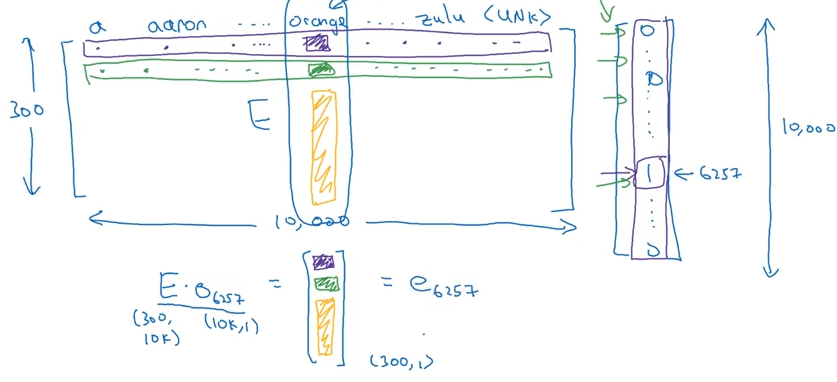 a aaron ..... orange ..... zulu <UNK>
0
0
300
E
10,000
1 ← 6257
10,000
0
E · o6257 = [ ] = e6257
(300, 10K) (10K, 1)
(300, 1)